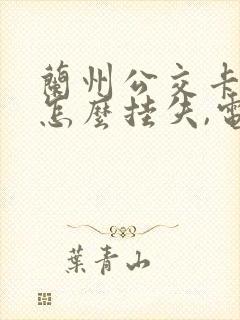 蘭州公交卡
怎麼挂失,電
葉青山